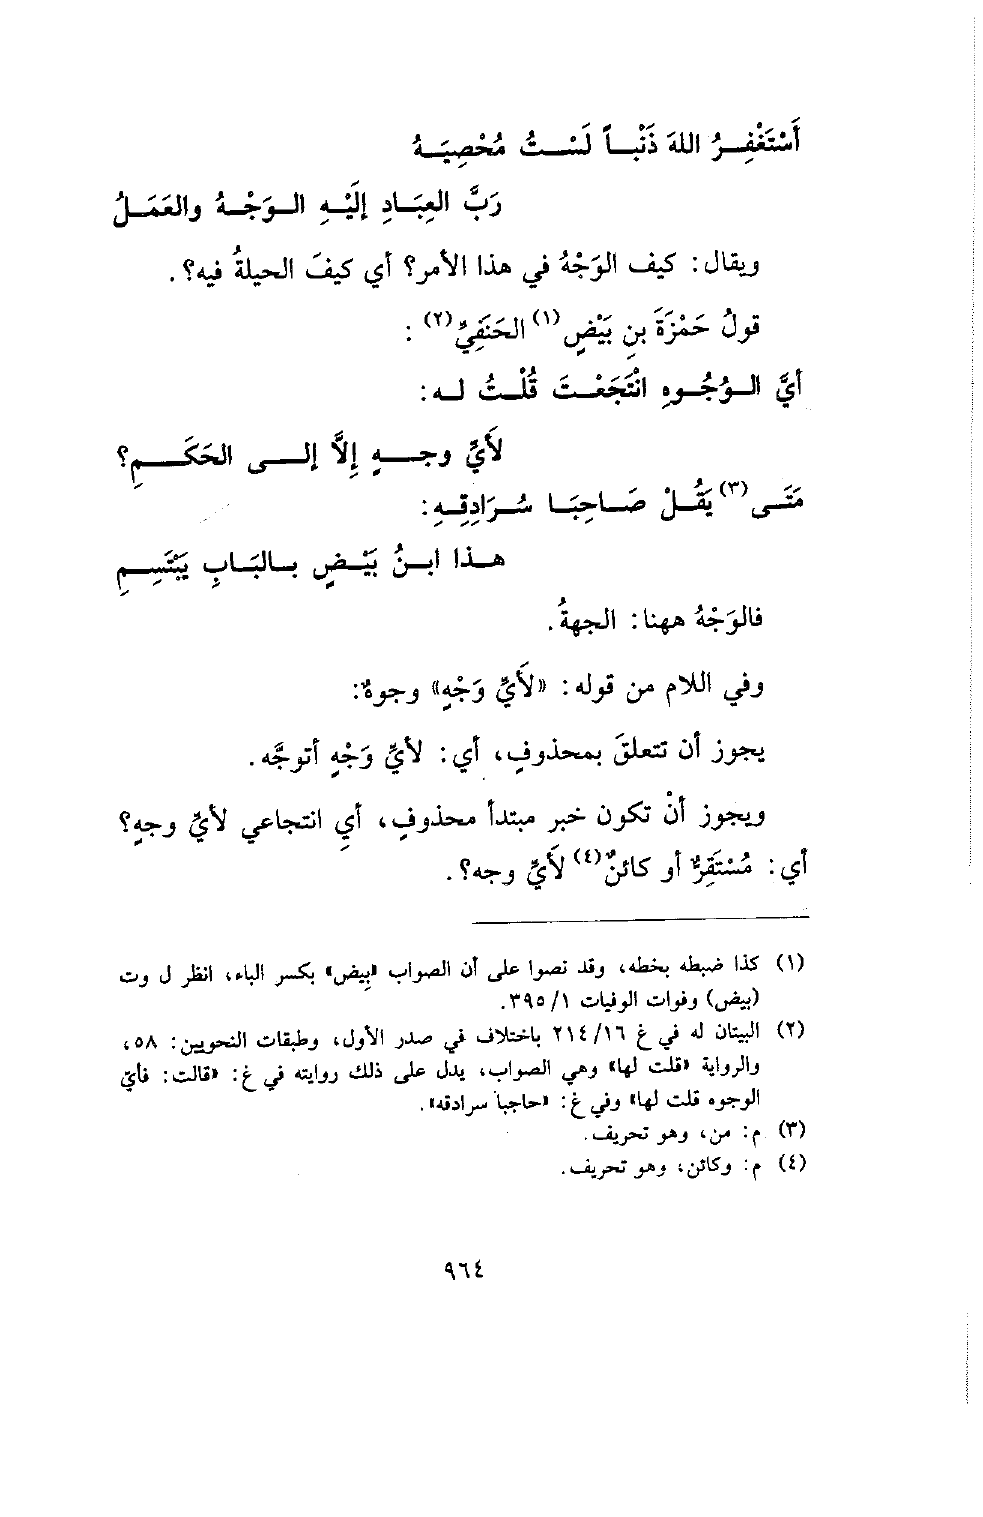 أَسْتَغْفِرُ اللهَ ذَنْباً لَسْتُ مُحْصِيَهُ
رَبَّ العِبَادِ إِلَيْهِ الوَجْهُ والعَمَلُ
ويقال: كيف الوَجْهُ في هذا الأمر؟ أي كيفَ الحيلةُ فيه؟.
قولُ حَمْزَةَ بنِ بَيْضٍ(١) الحَنَفِيِّ(٢):
أيَّ الوُجُوهِ انْتَجَعْتَ قُلْتُ له:
لَأيِّ وجهٍ إِلَّا إلى الحَكَمِ؟
مَتَى(٣) يَقُلْ صَاحِبَا سُرَادِقِهِ:
هذا ابنُ بَيْضٍ بالبَابِ يَبْتَسِمِ
فالوَجْهُ ههنا: الجهةُ.
وفي اللام من قوله: «لَأيِّ وَجْهٍ» وجوهٌ:
يجوز أن تتعلقَ بمحذوفٍ، أي: لأيِّ وَجْهٍ أتوجَّه.
ويجوز أنْ تكون خبر مبتدأ محذوفٍ، أيِ انتجاعي لأيِّ وجهٍ؟
أي: مُسْتَقِرٌّ أو كائنٌ(٤) لَأيِّ وجه؟.
(١) كذا ضبطه بخطه، وقد نصوا على أن الصواب «بِيض» بكسر الباء، انظر ل وت
(بيض) وفوات الوفيات ١/ ٣٩٥.
(٢) البيتان له في غ ١٦/ ٢١٤ باختلاف في صدر الأول، وطبقات النحويين: ٥٨،
والرواية «قلت لها» وهي الصواب، يدل على ذلك روايته في غ: «قالت: فأيّ
الوجوه قلت لها» وفي غ: «حاجبا سرادقه».
(٣) م: من، وهو تحريف.
(٤) م: وكائن، وهو تحريف.
٩٦٤